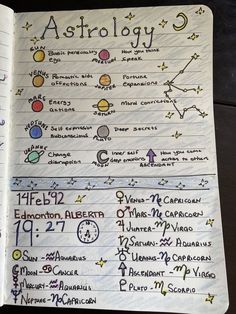 Astrology
SUN Basic personality Ego
MERCURY How you think Speak
VENUS Romantic side affections
JUPITER Fortune Expansions
MARS Energy Actions
SATURN Moral convictions
NEPTUNE Self expression
PLUTO Deep secrets
URANUS Change disruption
MOON Inner self Deep emotions
ASCENDANT How you come across to others
14 Feb '92
Edmonton, ALBERTA
19:27
♀ VENUS-♑ CAPRICORN
♂ MARS-♑ CAPRICORN
♃ JUPITER-♍ VIRGO
♄ SATURN-♒ AQUARIUS
SUN-♒ AQUARIUS
URANUS-♑ CAPRICORN
MOON-♋ CANCER
ASCENDANT-♍ VIRGO
MERCURY-♒ AQUARIUS
PLUTO-♏ SCORPIO
♆ NEPTUNE-♑ CAPRICORN